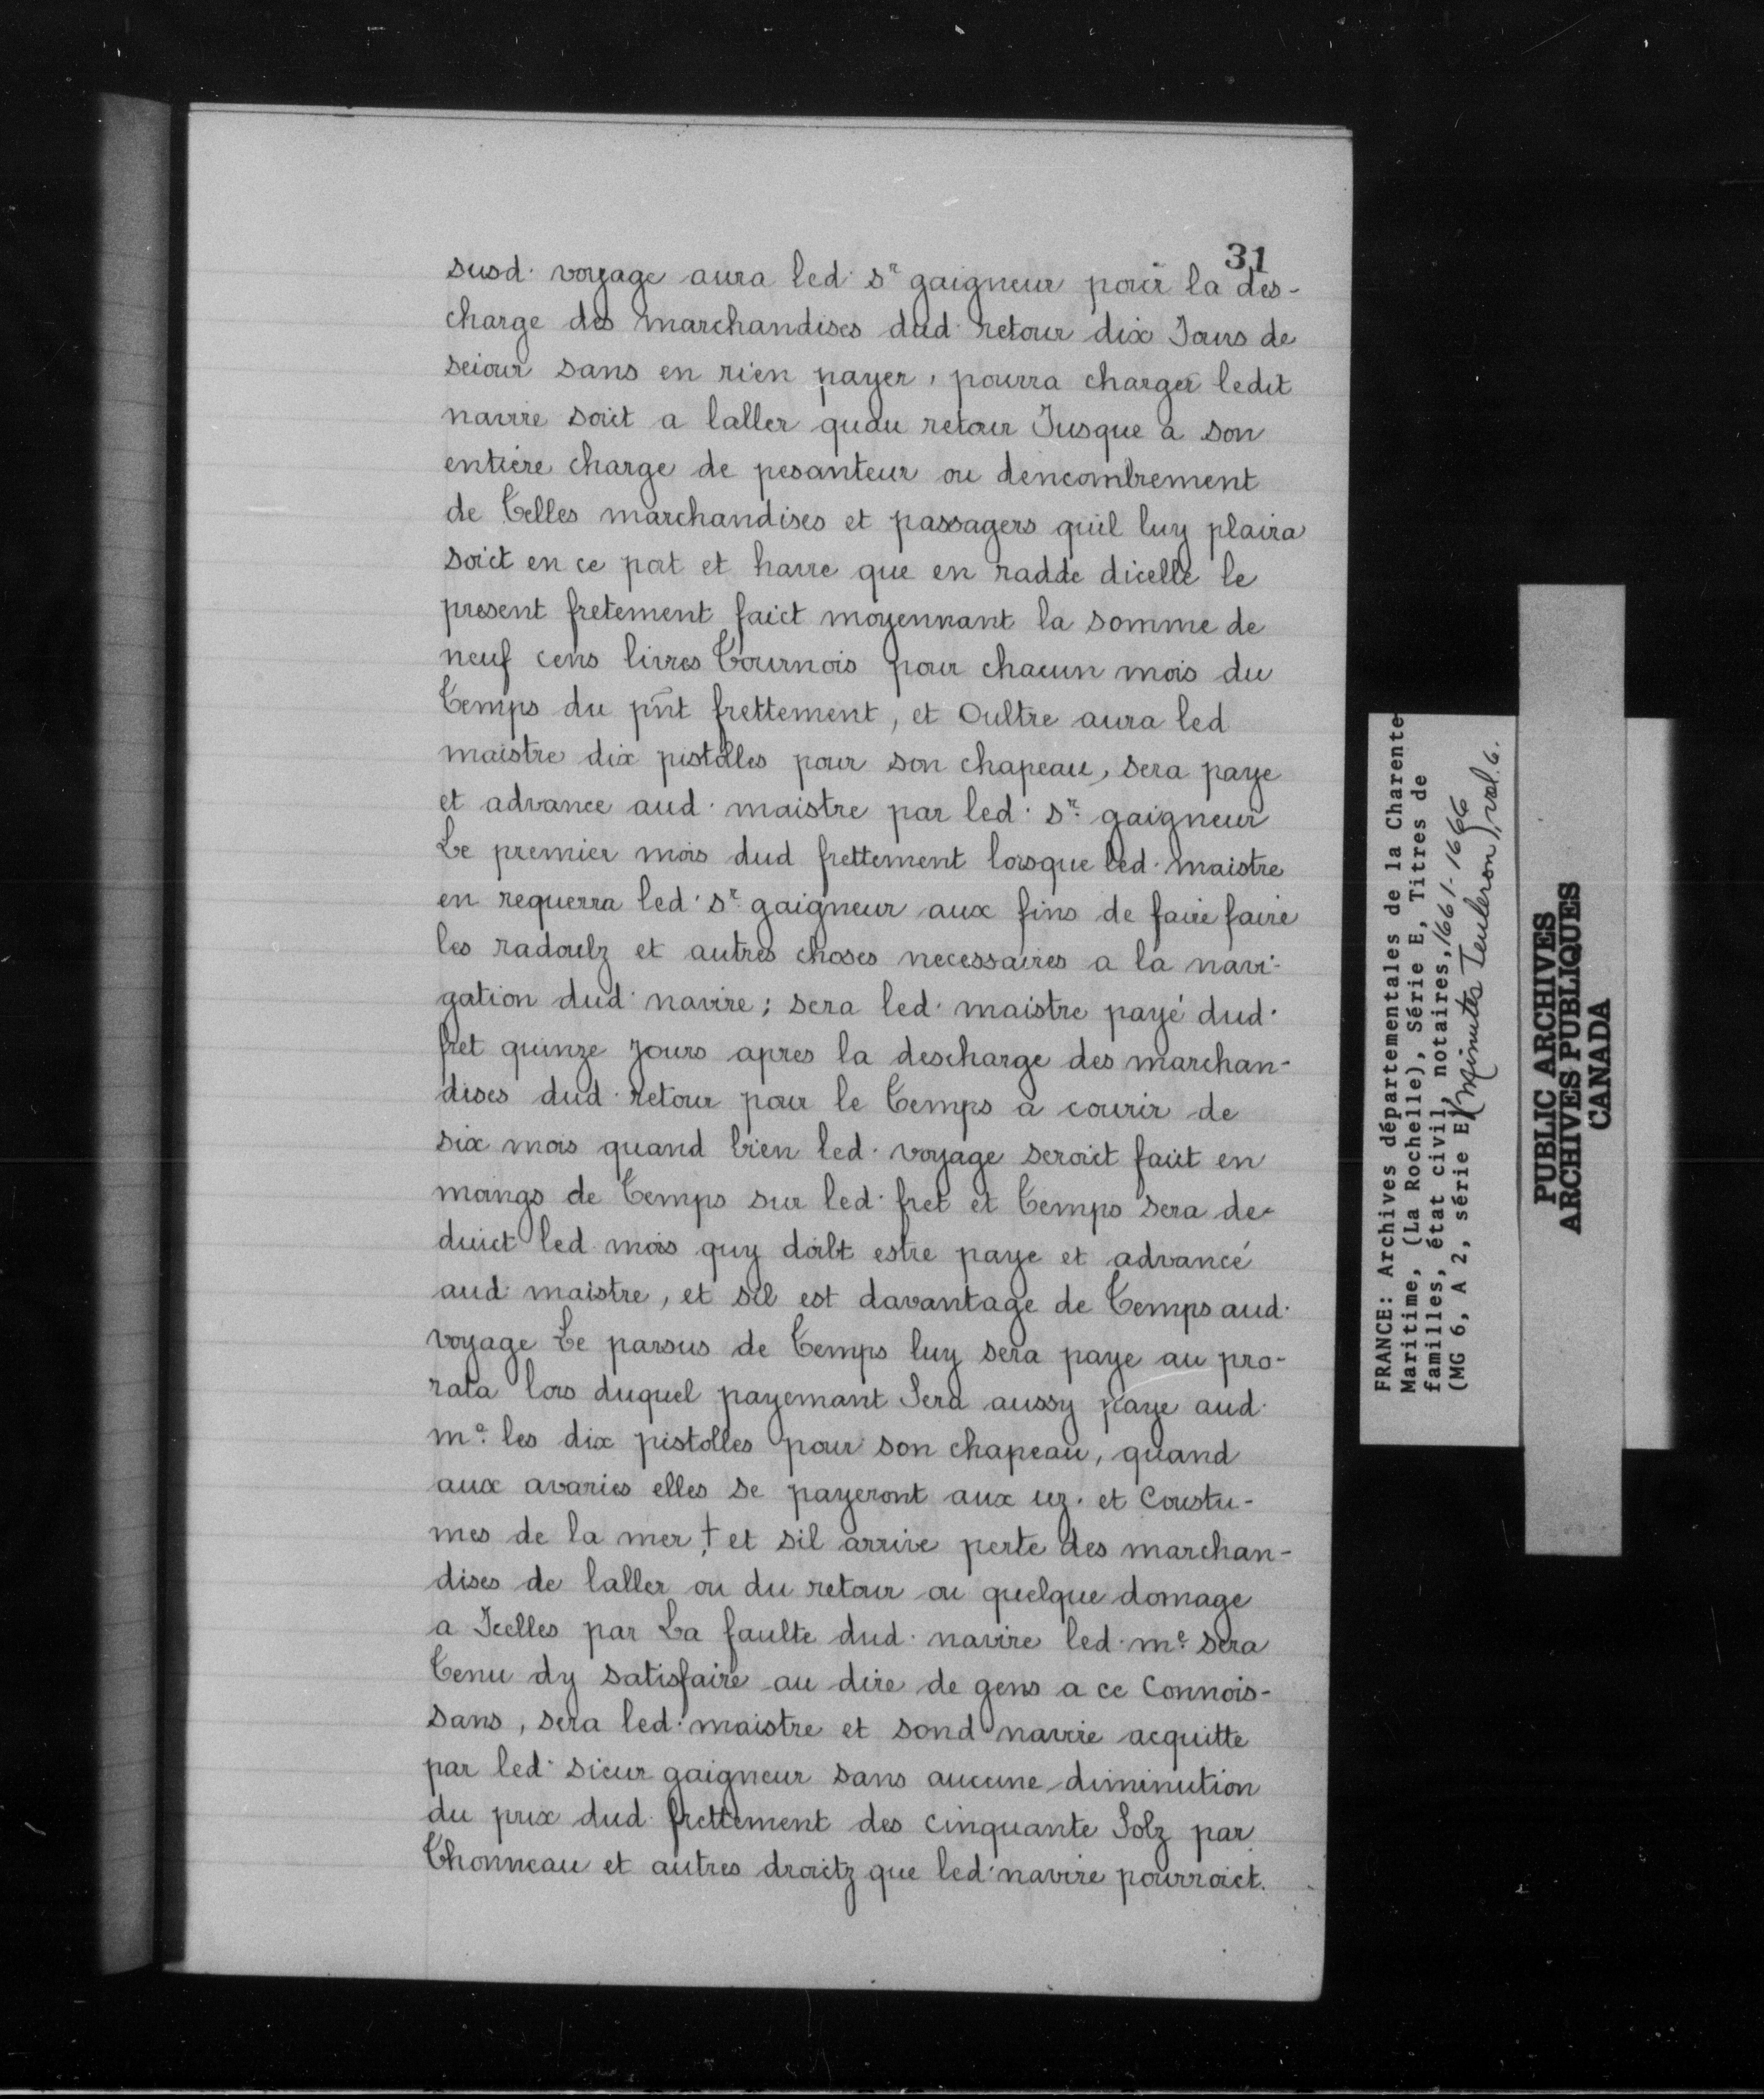 31
susd. voyage aura led. sr gaigneur pour la des-
charge des marchandises dud. retour dix Jours de
seiour sans en rien payer, pourra charger ledit
navire soict a laller quau retour Jusque a son
entiere charge de pesanteur ou dencombrement
de Telles marchandises et passagers quil luy plaira
soict en ce port et havre que en radde dicelle le
present fretement faict moyennant la somme de
neuf cens livres Tournois pour chacun mois du
Temps du pñt frettement, et Oultre aura led
maistre dix pistolles pour son chapeau, sera paye
et advance aud. maistre par led. sr. gaigneur
Le premier mois dud frettement lorsque led. maistre
en requerra led. sr. gaigneur aux fins de faire faire
les radoulz et autres choses necessaires a la navi-
gation dud. navire; sera led. maistre payé dud.
fret quinze jours apres la descharge des marchan-
dises dud. retour pour le Temps a courir de
six mois quand bien led. voyage seroict faict en
moings de Temps sur led. fret et Temps sera de-
duict led. mois quy doibt estre paye et advancé
aud. maistre, et sil est davantage de Temps aud.
voyage Le parsus de Temps luy sera paye au pro-
rata lors duquel payemant Sera aussy paye aud.
me. les dix pistolles pour son chapeau, quand
aux avaries elles se payeront aux uz. et Coustu-
mes de la mer,† et sil arrive perte des marchan-
dises de laller ou du retour ou quelque domage
a Icelles par La faulte dud. navire led. me. sera
Tenu dy satisfaire au dire de gens a ce Connois-
sans, sera led. maistre et sond. navire acquitte
par led. sieur gaigneur sans aucune diminution
du prix dud. frettement des cinquante Solz par
Thonneau et autres droictz que led. navire pourroict.
FRANCE: Archives départementales de la Charente
Maritime, (La Rochelle), Série E, Titres de
familles, état civil, notaires, 1661-1666
(MG 6, A 2, série E) (Minutes Teuleron), vol. 6.
PUBLIC ARCHIVES
ARCHIVES PUBLIQUES
CANADA